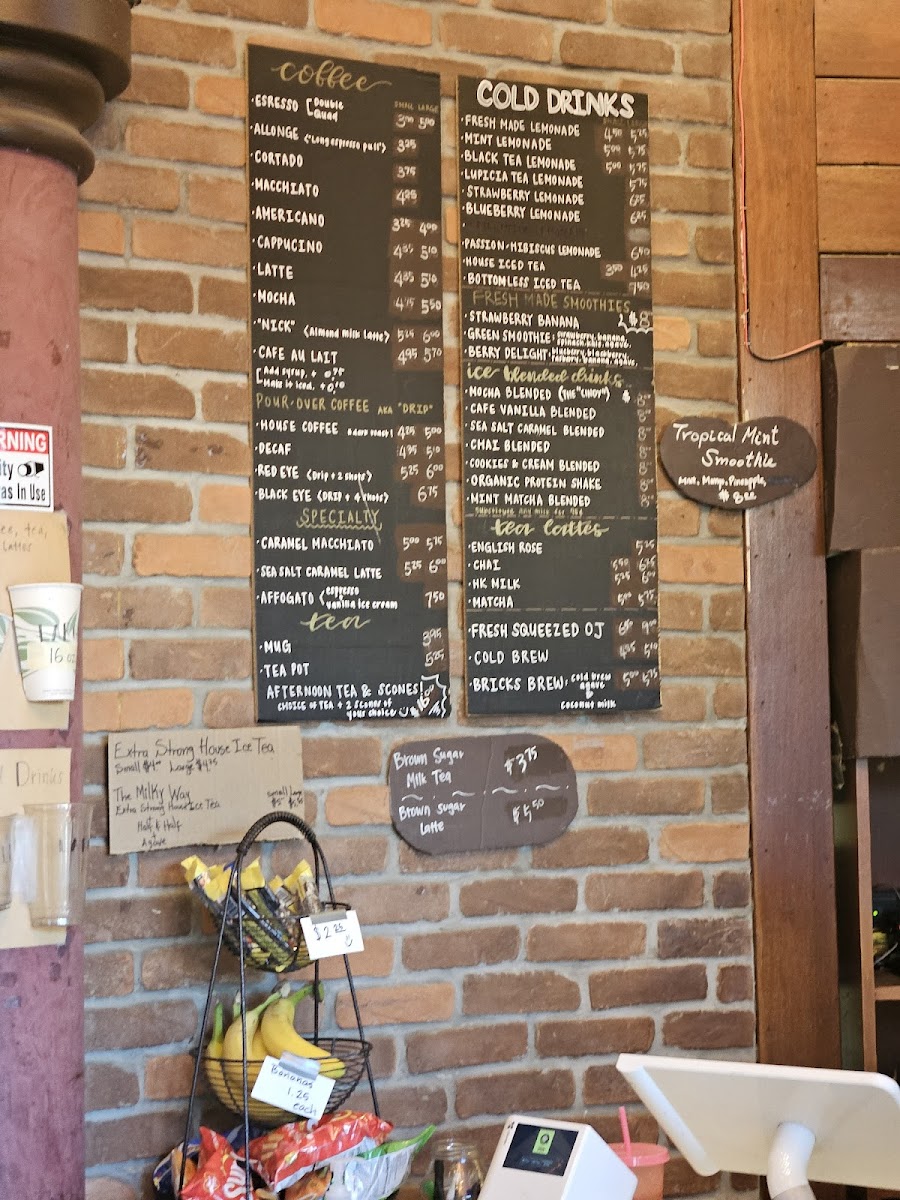 coffee
SMALL LARGE
· ESPRESSO [Double 3⁰⁰ 5⁰⁰
Quad
· ALLONGE ("Long espresso pull") 3²⁵
· CORTADO 3⁷⁵
· MACCHIATO 4²⁵
· AMERICANO 3²⁵ 4⁰⁰
· CAPPUCINO 4³⁵ 5¹⁰
· LATTE 4³⁵ 5¹⁰
· MOCHA 4⁷⁵ 5⁵⁰
· "NICK" (Almond milk latte) 5²⁵ 6⁰⁰
· CAFE AU LAIT 4⁹⁵ 5⁷⁰
[Add syrup. +
Make it iced. +
POUR-OVER COFFEE AKA "DRIP"
· HOUSE COFFEE 4²⁵ 5⁰⁰
· DECAF 4³⁵ 5¹⁰
· RED EYE (Drip + 2 shots) 5²⁵ 6⁰⁰
· BLACK EYE (DRIP + 4 shots) 6⁷⁵
SPECIALTY
· CARAMEL MACCHIATO 5⁰⁰ 5⁷⁵
· SEA SALT CARAMEL LATTE 5²⁵ 6⁰⁰
· AFFOGATO (espresso 7⁵⁰
vanilla ice cream
tea
· MUG 3⁹⁵
· TEA POT 5²⁵
AFTERNOON TEA & SCONES!
CHOICE OF TEA + 2 scones of
your choice
COLD DRINKS
· FRESH MADE LEMONADE 4⁵⁰ 5²⁵
· MINT LEMONADE 5⁰⁰ 5⁷⁵
· BLACK TEA LEMONADE 5⁰⁰ 5⁷⁵
· LUPICIA TEA LEMONADE 5⁷⁵
· STRAWBERRY LEMONADE 6²⁵
· BLUEBERRY LEMONADE 6²⁵
· PASSION-HIBISCUS LEMONADE 6⁴⁰
· HOUSE ICED TEA 3⁵⁰ 4²⁵
· BOTTOMLESS ICED TEA 7⁵⁰
FRESH MADE SMOOTHIES
· STRAWBERRY BANANA $8
· GREEN SMOOTHIE: strawberry, banana,
spinach, agave.
· BERRY DELIGHT: blueberry, blackberry,
agave.
ice blended drinks
· MOCHA BLENDED (THE "CINDY") $8
· CAFE VANILLA BLENDED 8
· SEA SALT CARAMEL BLENDED 8
· CHAI BLENDED 8
· COOKIES & CREAM BLENDED 8
· ORGANIC PROTEIN SHAKE 8
· MINT MATCHA BLENDED 8
Substitute any milk for
tea lattes
· ENGLISH ROSE 5²⁵
· CHAI
· HK MILK 5²⁵ 6⁰⁰
· MATCHA 5⁰⁰ 5⁷⁵
· FRESH SQUEEZED OJ
· COLD BREW 5¹⁰
· BRICKS BREW: cold brew 5⁰⁰ 5⁷⁵
agave
coconut milk
Tropical Mint
Smoothie
Mint, Mango, Pineapple,
$8
Extra Strong House Ice Tea
Small Large $4.75
The Milky Way small large
Extra Strong House Ice Tea
Half & Half
+
Agave
Brown Sugar
Milk Tea $3.75
Brown sugar
Latte $5.50
$2.25
Bananas
1.25
each
RNING
ity
as In Use
ee, tea,
Lattes
16 oz
Drinks